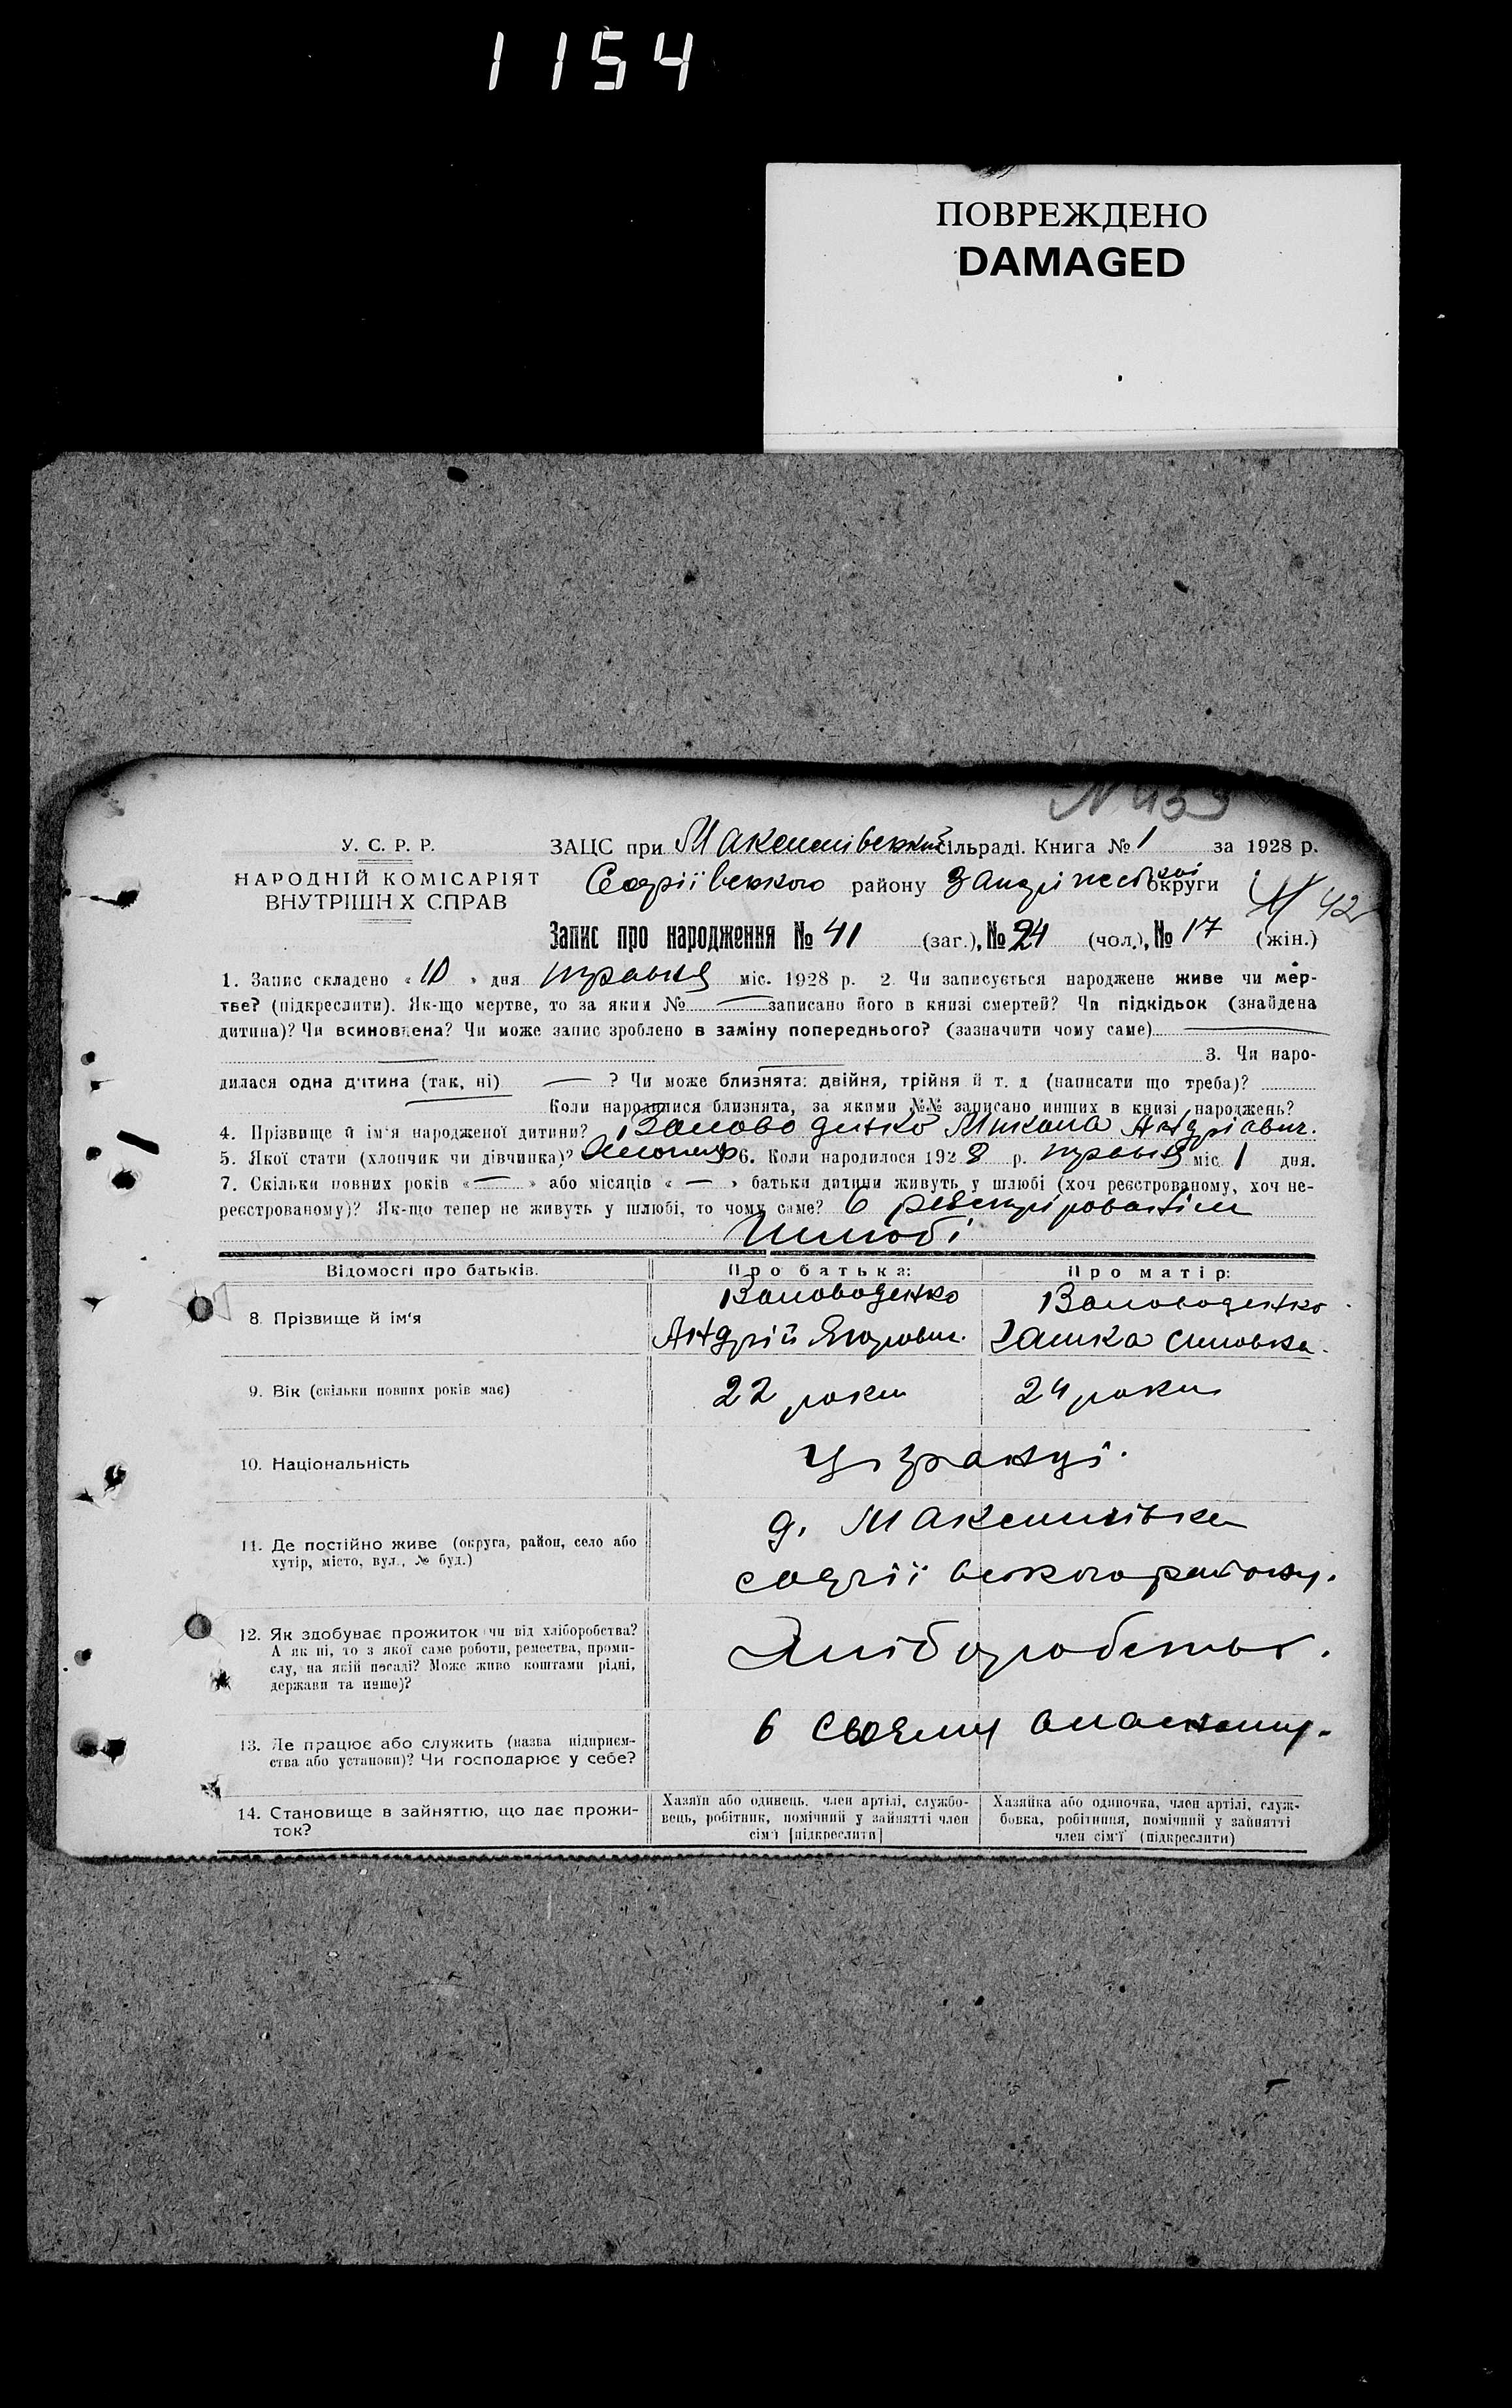 1154
ПОВРЕЖДЕНО
DAMAGED
N 433
У. С. Р. Р.
НАРОДНІЙ КОМІСАРІЯТ
ВНУТРІШН Х СПРАВ
ЗАЦС при Максимівський сільраді. Книга № 1 за 1928 р.
району округи
42
Запис про народження № 41 (заг.), № 24 (чол.), № 17 (жін.)
1. Запис складено «10» дня травня міс. 1928 р. 2. Чи записується народжене живе чи мер-
тве? (підкреслити). Як-що мертве, то за яким № — записано його в книзі смертей? Чи підкідьок (знайдена
дитина)? Чи всиновлена? Чи може запис зроблено в заміну попереднього? (зазначити чому саме) —
3. Чи наро-
дилася одна дитина (так, ні) — ? Чи може близнята: двійня, трійня й т. д (написати що треба)?
Коли народилися близнята, за якими №№ записано инших в книзі народжень?
4. Прізвище й ім'я народженої дитини? Воловоденко Микола Андріович.
5. Якої стати (хлопчик чи дівчинка)? Хлопець 6. Коли народилося 1928 р. травня міс. 1 дня.
7. Скільки повних років «—» або місяців «—» батьки дитини живуть у шлюбі (хоч реєстрованому, хоч не-
реєстрованому)? Як-що тепер не живуть у шлюбі, то чому саме? в
Шлюбі
Відомості про батьків.
Про батька:
Про матір:
8. Прізвище й ім'я
Воловоденко
Андрій Ягорович.
Воловоденко
9. Вік (скільки повних років має)
22 роки
24 роки
10. Національність
11. Де постійно живе (округа, район, село або
хутір, місто, вул., № буд.)
д. Максимівка
району.
12. Як здобуває прожиток чи від хліборобства?
А як ні, то з якої саме роботи, ремества, проми-
слу, на якій посаді? Може живе коштами рідні,
держави та инше)?
Хліборобством.
13. Де працює або служить (назва підприєм-
ства або установи)? Чи господарює у себе?
в своєму власному.
14. Становище в зайняттю, що дає прожи-
ток?
Хазяїн або одинець, член артілі, службо-
вець, робітник, помічний у зайнятті член
сім'ї [підкреслити]
Хазяйка або одиночка, член артілі, служ-
бовка, робітниця, помічний у зайнятті
член сім'ї (підкреслити)